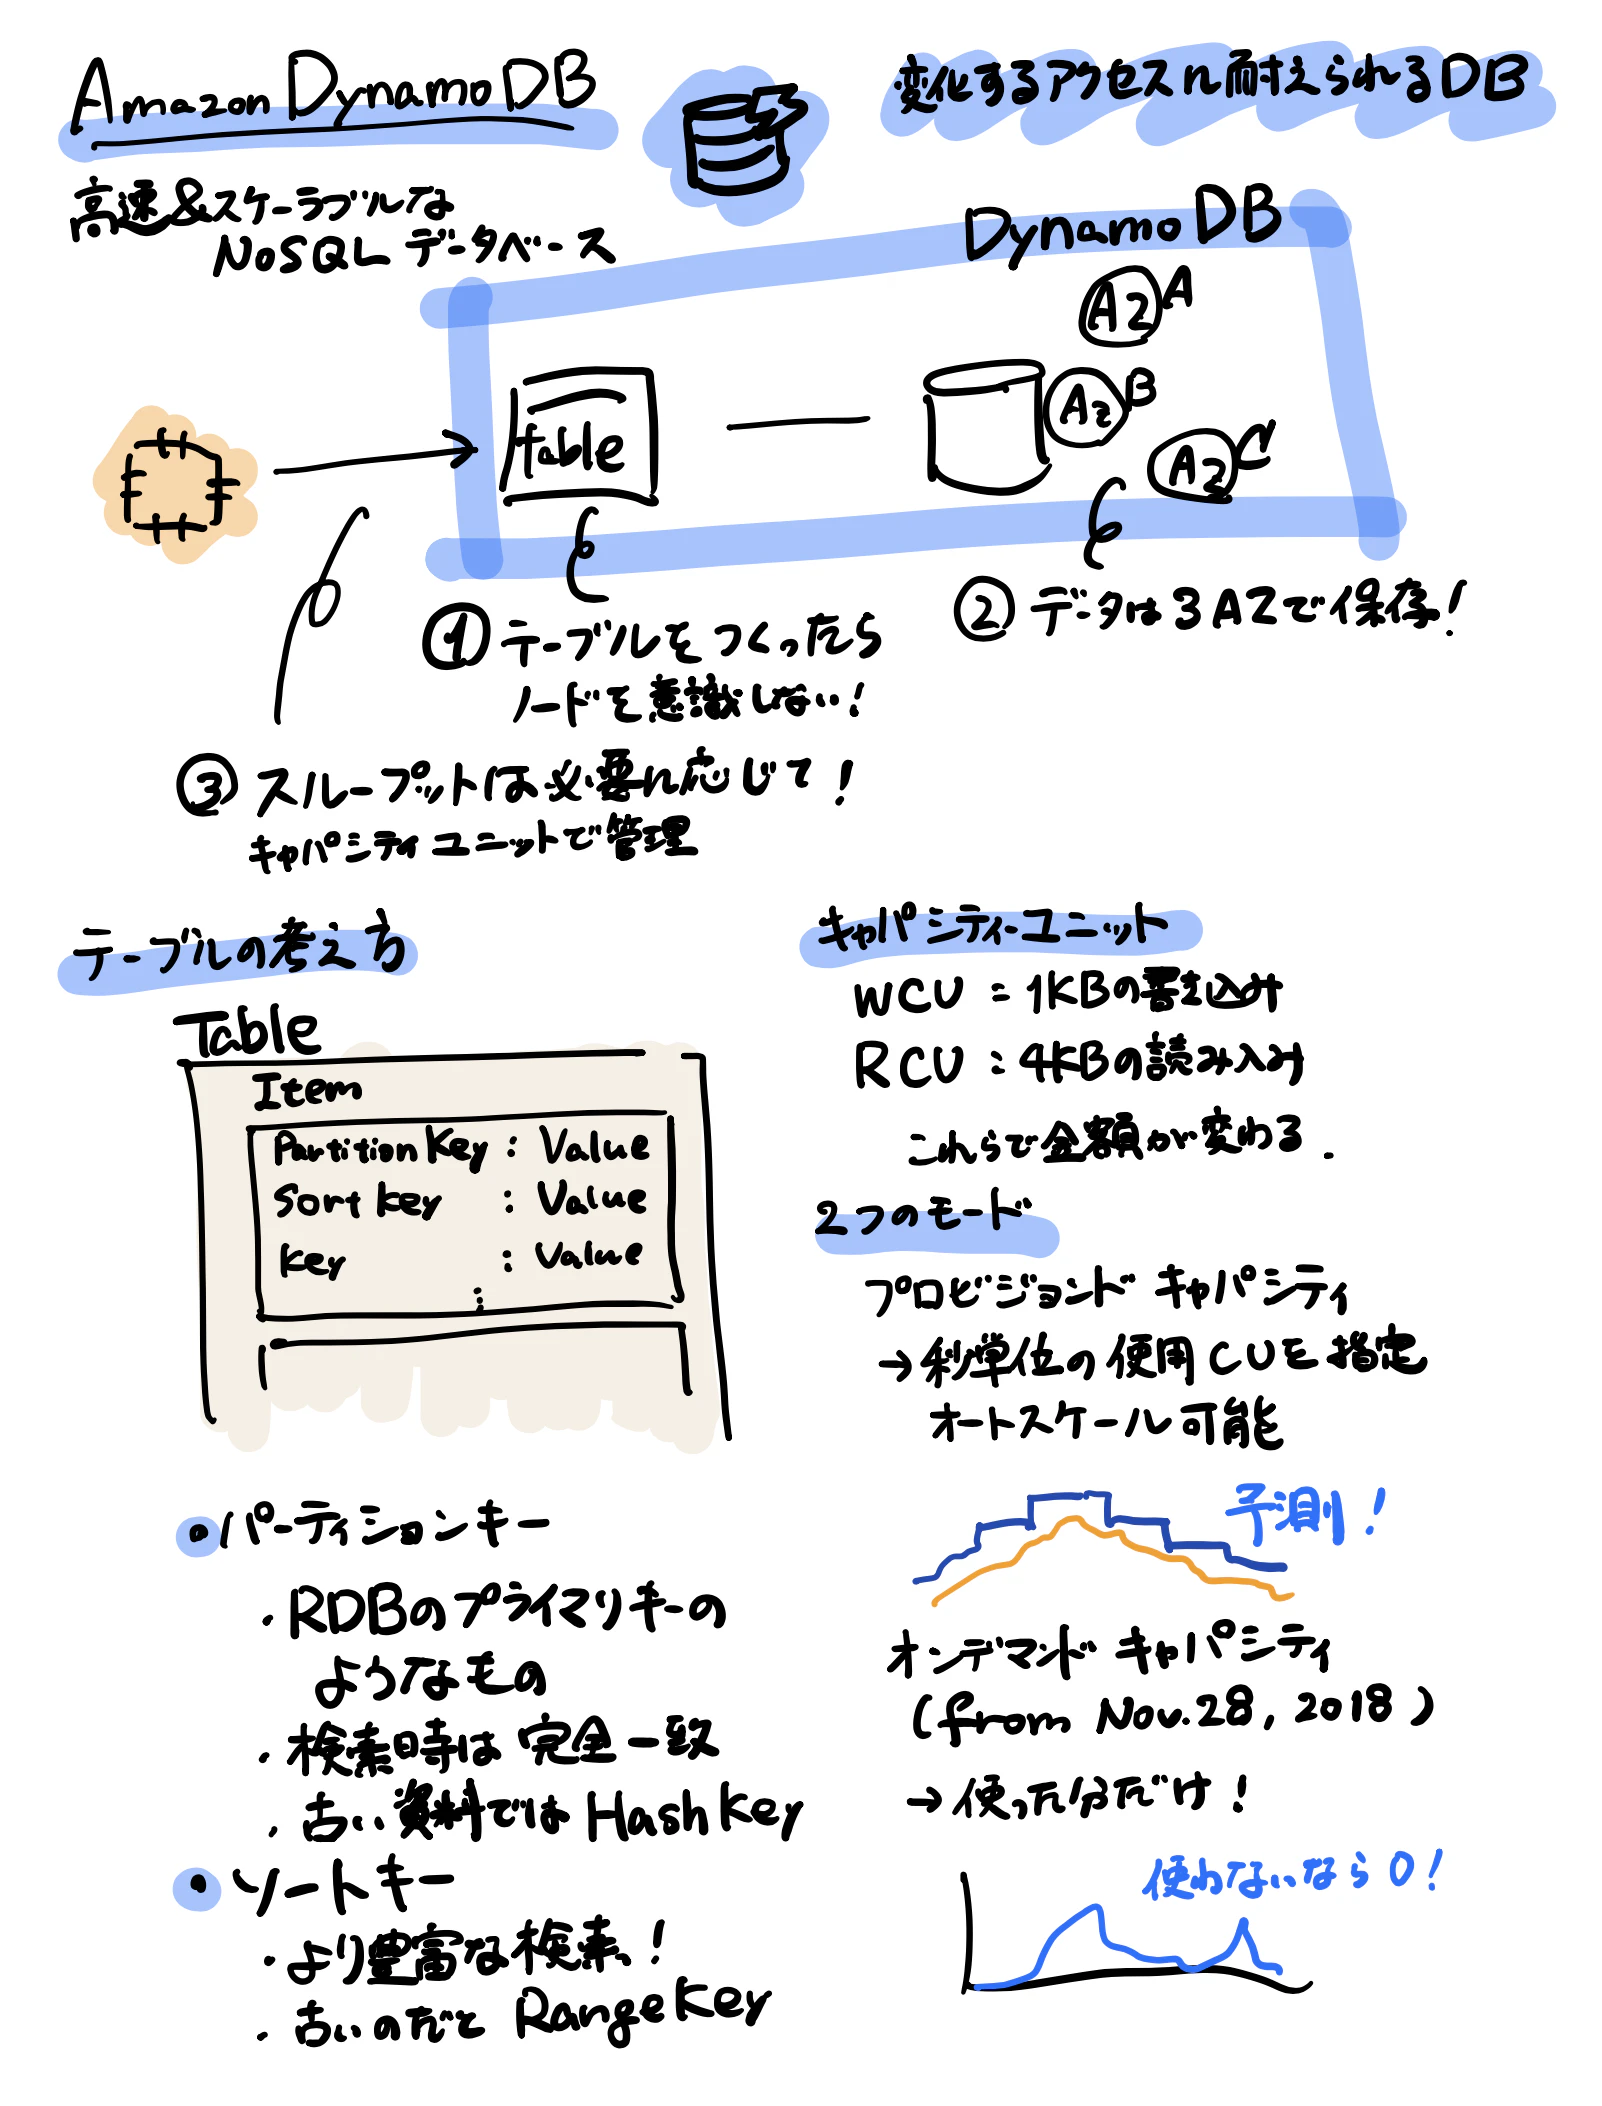 Amazon DynamoDB
変化するアクセスに耐えられるDB
高速&スケーラブルな
NoSQL データベース
DynamoDB
AZ A
AZ B
AZ C
table
① テーブルをつくったら
ノードを意識しない!
② データは3AZで保存!
③ スループットは必要に応じて!
キャパシティユニットで管理
テーブルの考え方
Table
Item
Partition Key : Value
Sort key : Value
key : Value
:
• パーティションキー
・RDBのプライマリキーの
ようなもの
・検索時は完全一致
・古い資料では Hash Key
• ソートキー
・より豊富な検索!
・古いのだと Range Key
キャパシティーユニット
WCU : 1KBの書き込み
RCU : 4KBの読み込み
これらで金額が変わる.
2つのモード
プロビジョンド キャパシティ
→ 秒単位の使用CUを指定
オートスケール可能
予測!
オンデマンド キャパシティ
(from Nov.28, 2018)
→ 使った分だけ!
使わないなら0!